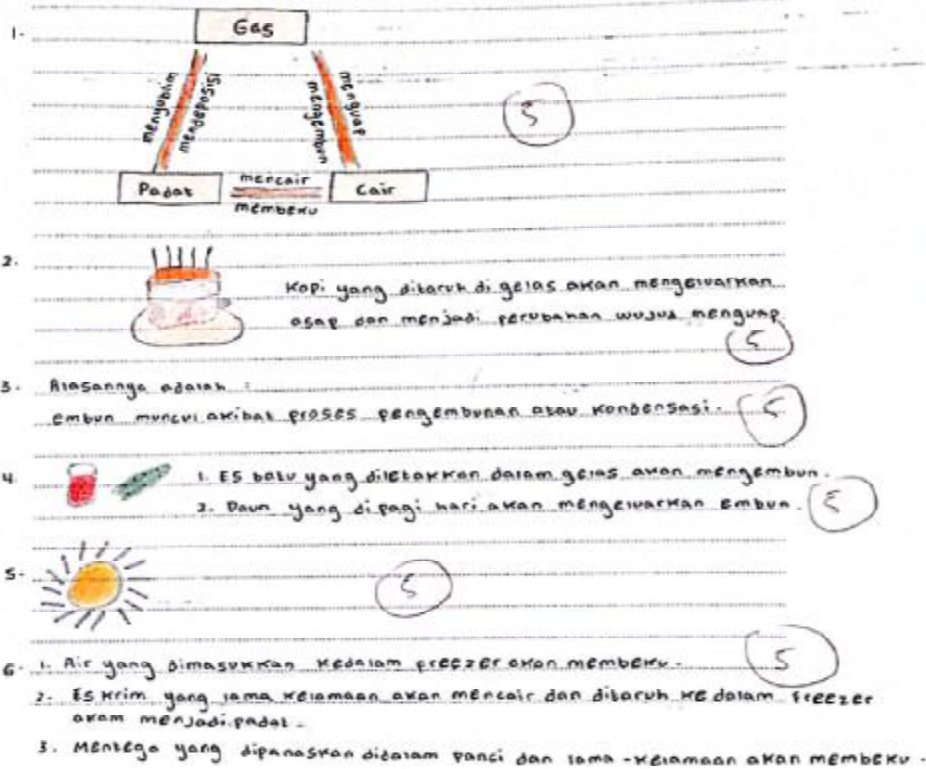 1.
Gas
menyublim
mendeposisi
menguap
mengembun
5
Padat
mencair
Cair
membeku
2.
Kopi yang ditaruh di gelas akan mengeluarkan
asap dan menjadi perubahan wujud menguap
5
3. Alasannya adalah :
embun muncul akibat proses pengembunan atau kondensasi.
5
4. 1. ES batu yang diletakkan dalam gelas akan mengembun.
2. Daun yang dipagi hari akan mengeluarkan Embun.
5
5.
5
6. 1. Air yang dimasukkan kedalam freezer akan membeku.
5
2. ES krim yang lama kelamaan akan mencair dan ditaruh ke dalam freezer
akam menjadi padat.
3. Mentega yang dipanaskan didalam panci dan lama-kelamaan akan membeku.